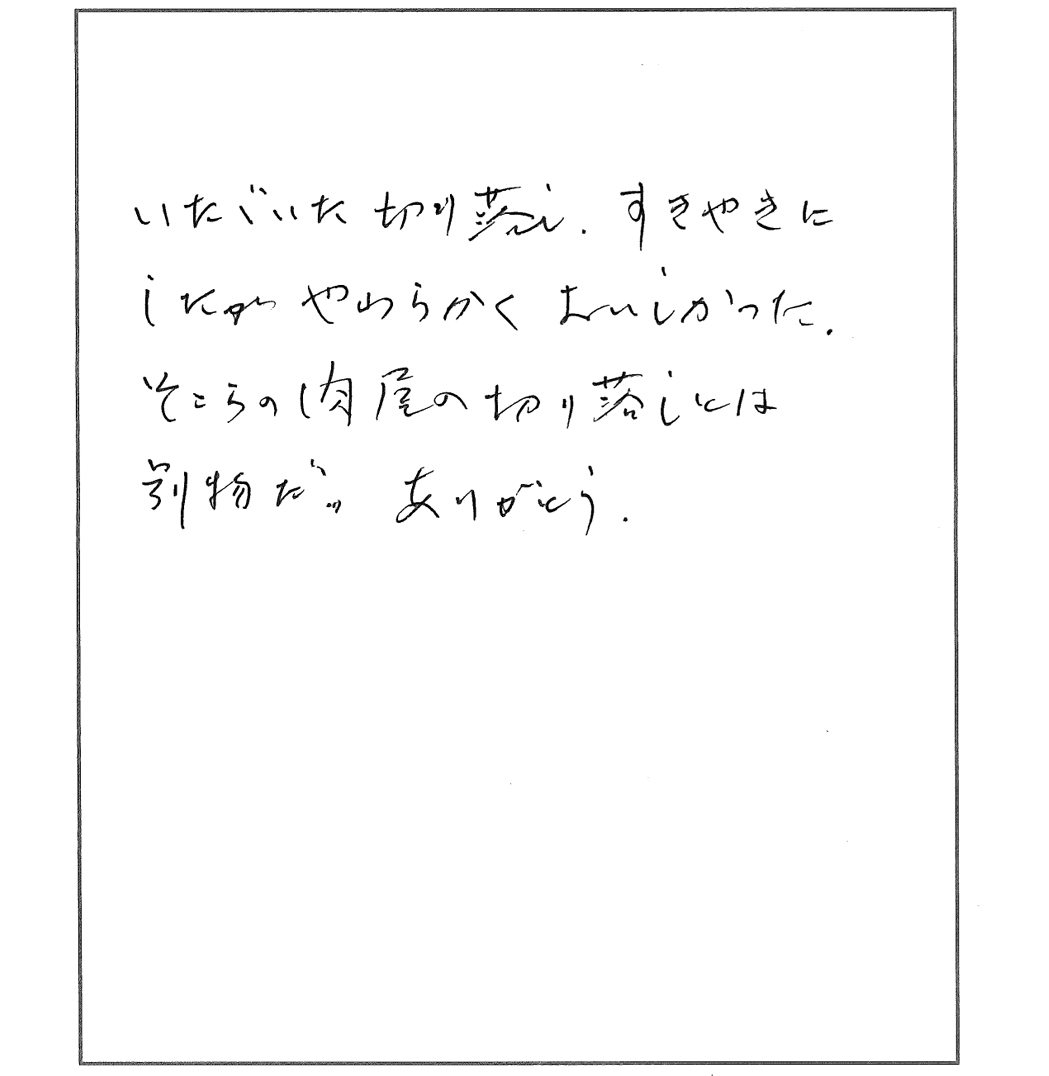 いただいた切り落し．すきやきに
したが やわらかく おいしかった．
そこらの肉屋の切り落しとは
別物だ。 ありがとう．